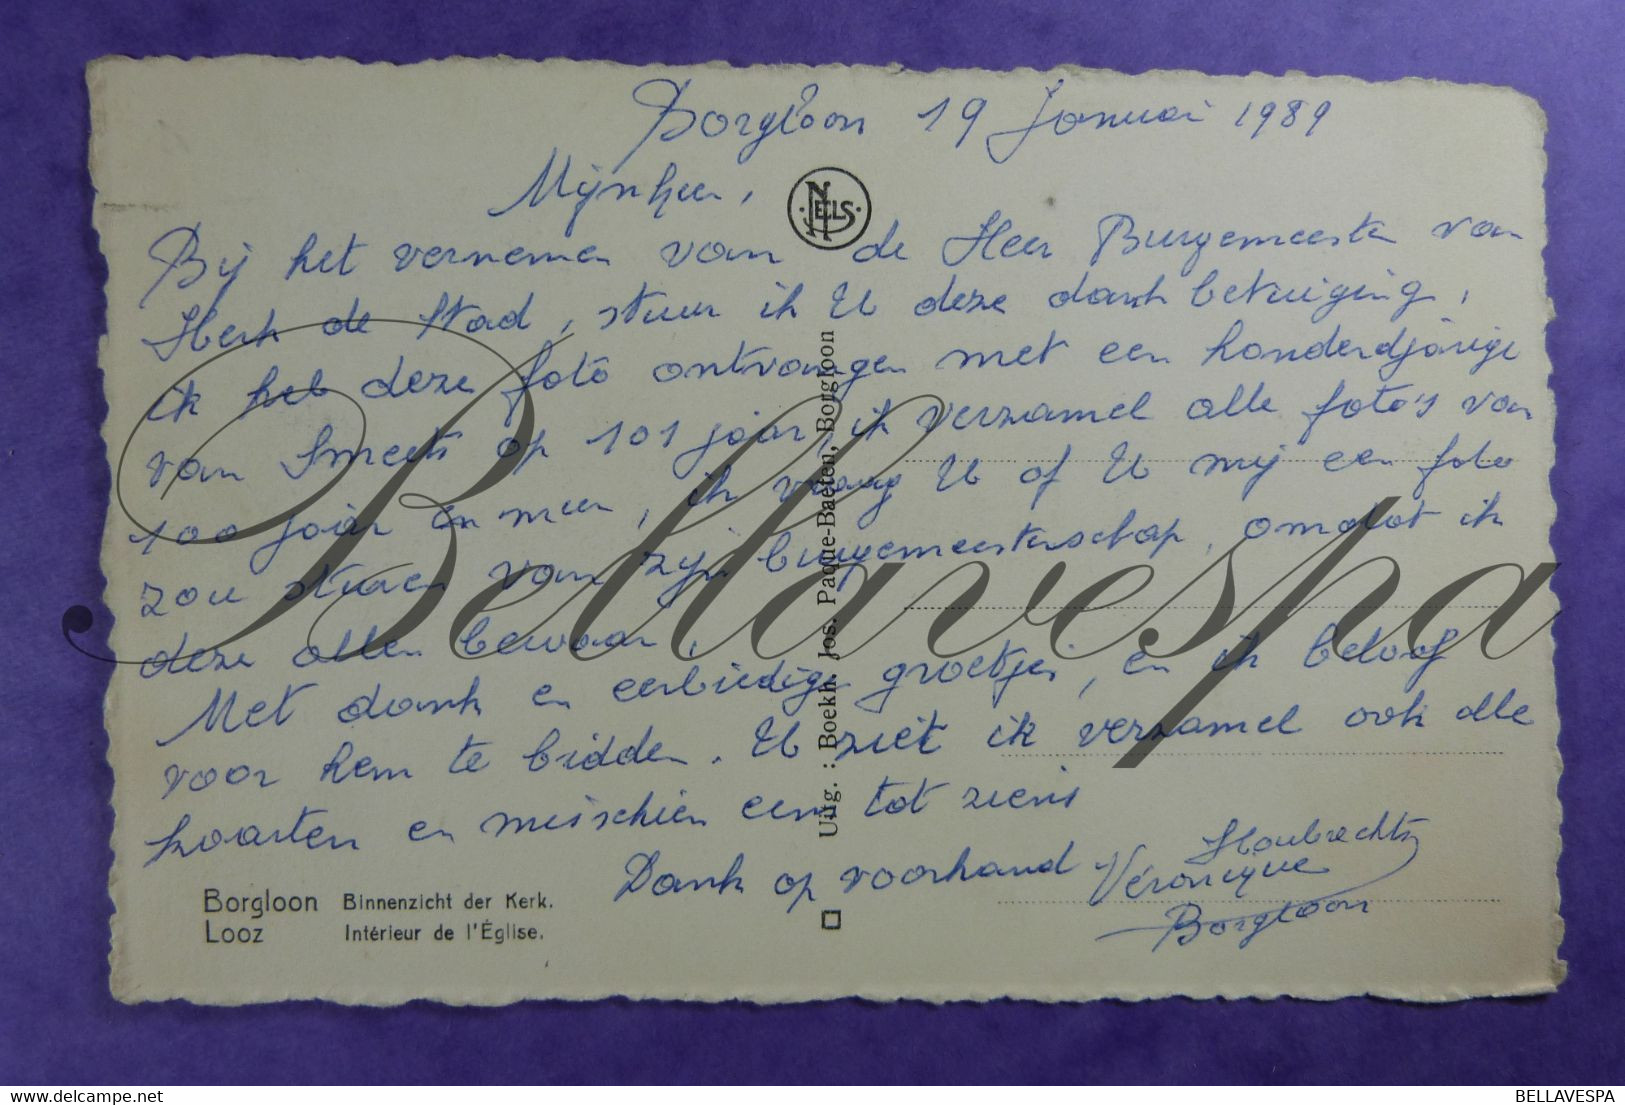 Borgloon 19 Januari 1989
Mijnheer,
NELS
Bij het vernemen van de Heer Burgemeester van
Herk de Stad, stuur ik U deze dank betuiging,
ik heb deze foto ontvangen met een honderdjarige
van Smeets op 101 jaar, ik verzamel alle foto's van
100 jaar en meer, ik vraag U of U mij een foto
zou sturen van zijn burgemeesterschap, omdat ik
deze allen bewaar.
Met dank en eerbiedige groetjes, en ik beloof
voor hem te bidden. U ziet ik verzamel ook alle
kaarten en misschien eens tot ziens
Dank op voorhand
Houbrechts
Veronique
Borgloon
Borgloon Binnenzicht der Kerk.
Looz Intérieur de l'Église.
Uitg. : Boekh. Jos. Paque-Baeten, Borgloon
Bellavespa
BELLAVESPA